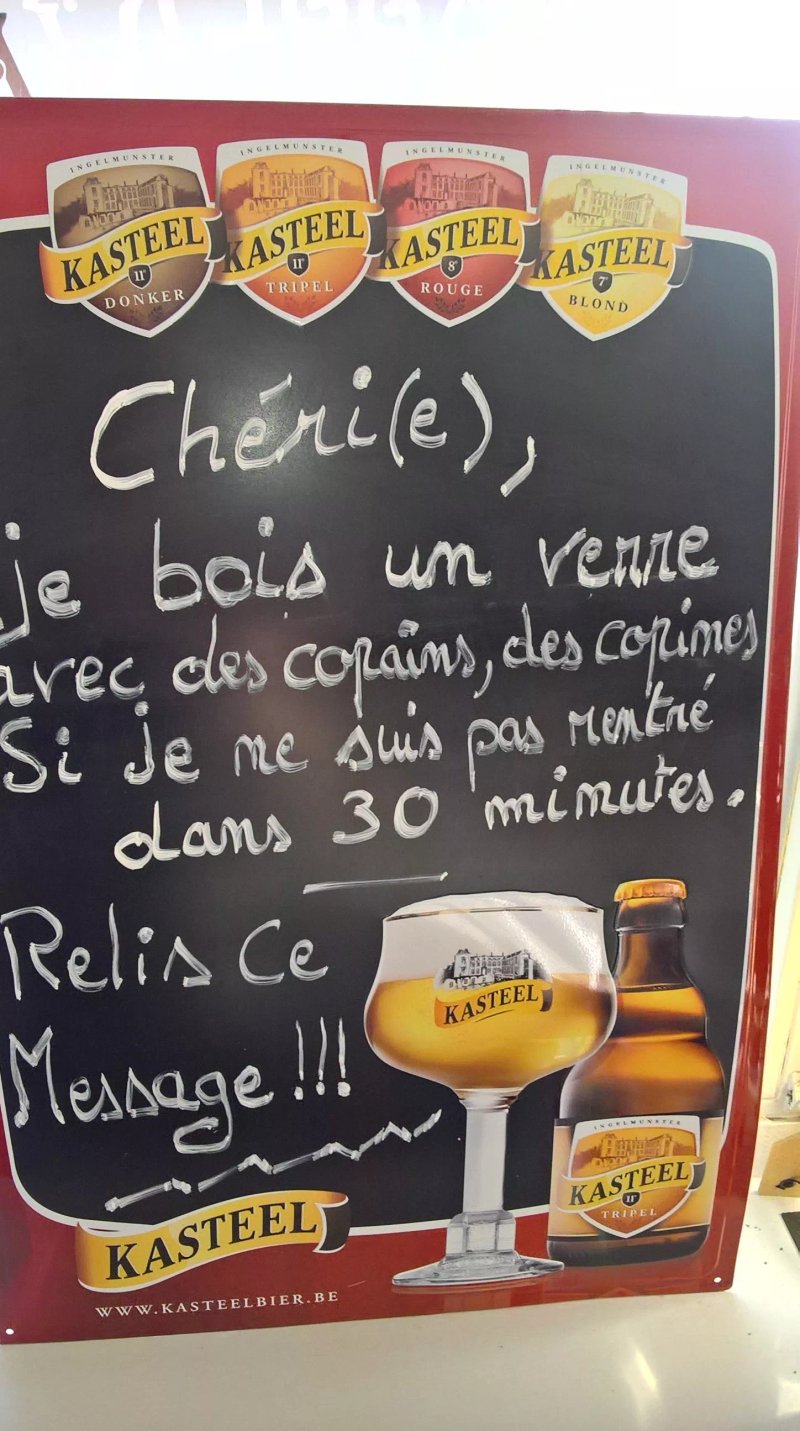 INGELMUNSTER
KASTEEL
11°
DONKER
INGELMUNSTER
KASTEEL
11°
TRIPEL
INGELMUNSTER
KASTEEL
8°
ROUGE
INGELMUNSTER
KASTEEL
7°
BLOND
Chéri(e),
je bois un verre
avec des copains, des copines
Si je ne suis pas rentré
dans 30 minutes.
Relis Ce
Message !!!
KASTEEL
INGELMUNSTER
KASTEEL
11°
TRIPEL
KASTEEL
WWW.KASTEELBIER.BE